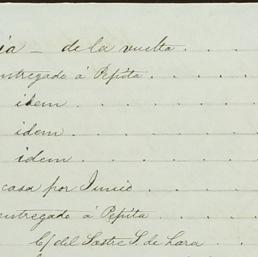 ia - de la vuelta . . . .
entregado á Pepita . . . . .
idem . . . . . . .
idem . . . . . . .
idem . . . . . . .
casa por Junio . . . .
entregado á Pepita . . . .
C/ del Sastre S. de Lara . . .